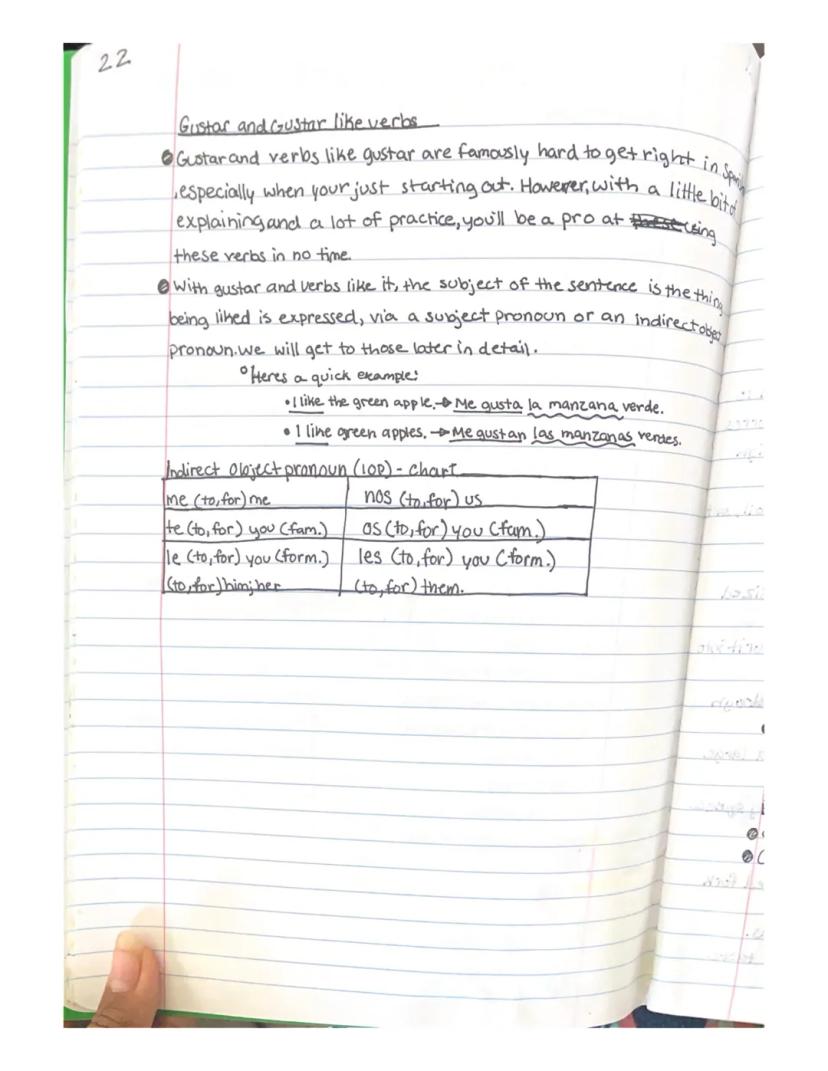 22
Gustar and Gustar like verbs
Gustar and verbs like gustar are famously hard to get right in Spanish
,especially when your just starting out. However, with a little bit of
explaining and a lot of practice, you'll be a pro at using
these verbs in no time.
With gustar and verbs like it, the subject of the sentence is the thing
being liked is expressed, via a subject pronoun or an indirect object
pronoun. We will get to those later in detail.
Heres a quick example:
• I like the green apple. → Me gusta la manzana verde.
• I like green apples. → Me gustan las manzanas verdes.
Indirect Object pronoun (IOP) - chart
me (to, for) me nos (to, for) us
te (to, for) you (fam.) os (to, for) you (fam.)
le (to, for) you (form.) les (to, for) you (form.)
(to, for) him; her (to, for) them.